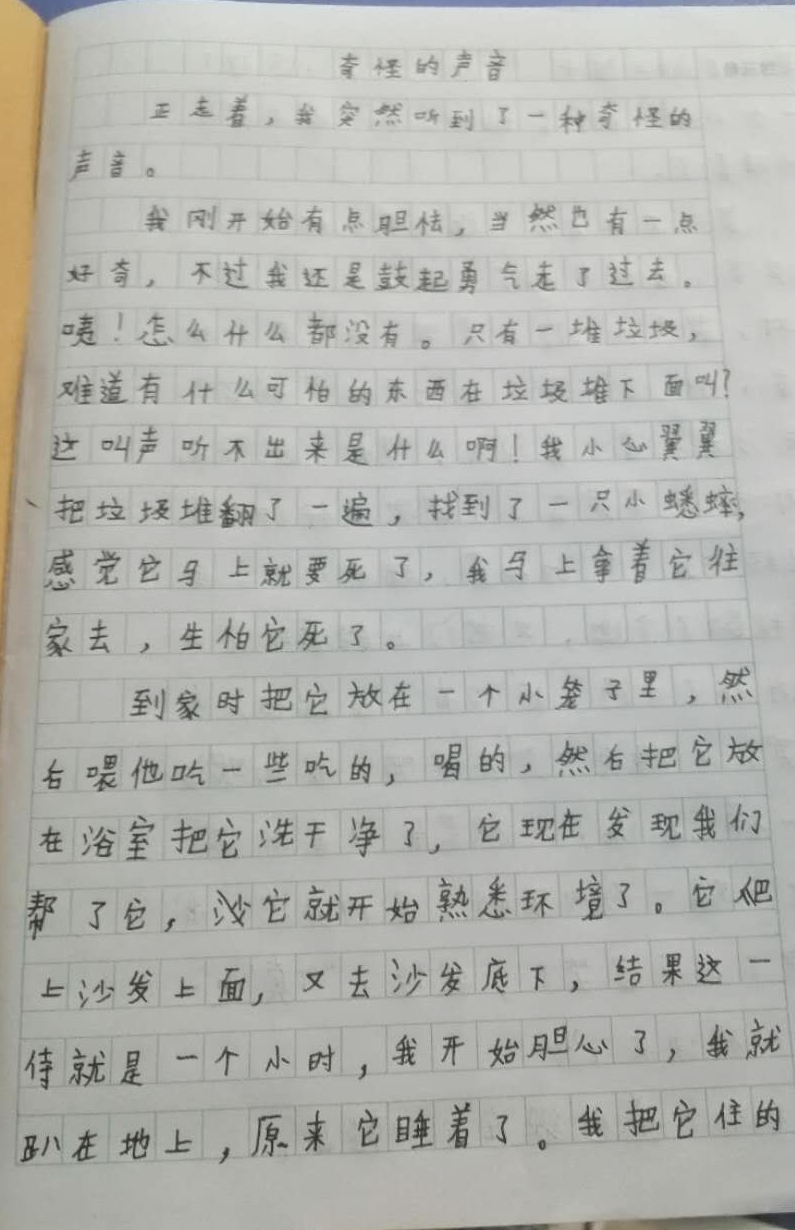 奇怪的声音
正走着，我突然听到了一种奇怪的
声音。
我刚开始有点胆怯，当然也有一点
好奇，不过我还是鼓起勇气走了过去。
咦！怎么什么都没有。只有一堆垃圾，
难道有什么可怕的东西在垃圾堆下面叫？
这叫声听不出来是什么啊！我小心翼翼
把垃圾堆翻了一遍，找到了一只小蟋蟀，
感觉它马上就要死了，我马上拿着它往
家去，生怕它死了。
到家时把它放在一个小笼子里，然
右喂他吃一些吃的，喝的，然右把它放
在浴室把它洗干净了，它现在发现我们
帮了它，它就开始熟悉环境了。它爬
上沙发上面，又去沙发底下，结果这一
待就是一个小时，我开始胆心了，我就
趴在地上，原来它睡着了。我把它住的